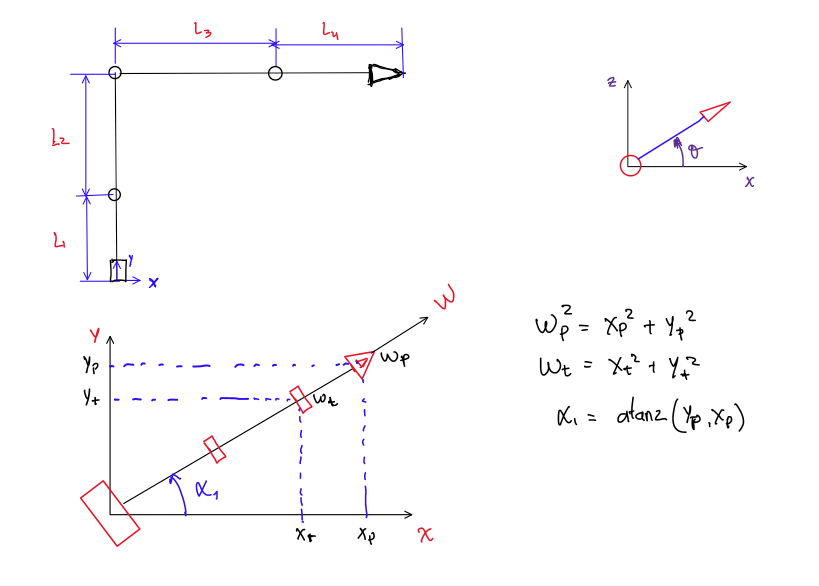 L3 L4
L2
L1
y
x
z
θ
x
W
Y
yp
wp
yt
wt
α1
xt xp
X
Wp² = xp² + yp²
Wt = xt² + yt²
α1 = atan2(yp, xp)